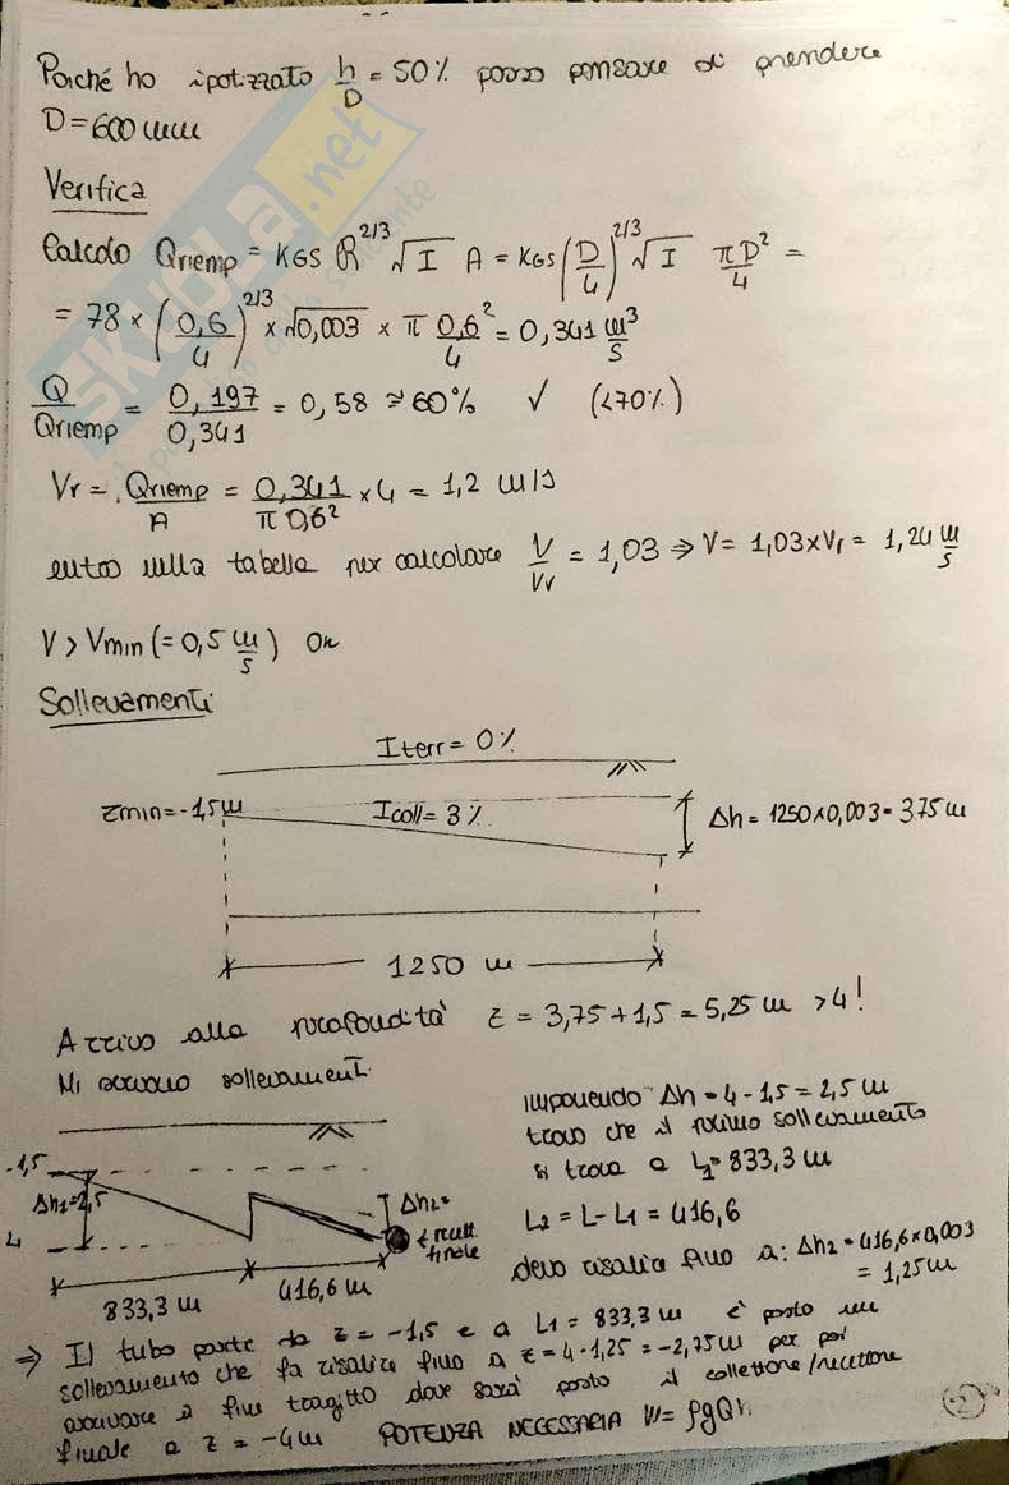 Poiché ho ipotizzato h/D = 50% posso pensare di prendere
D = 600 mm
Verifica
Calcolo Qriemp = KGS R^2/3 √I A = KGS (D/4)^2/3 √I πD²/4 =
= 78 × (0,6/4)^2/3 × √0,003 × π 0,6²/4 = 0,341 m³/s
Q/Qriemp = 0,197/0,341 = 0,58 ≈ 60% ✓ (<70%)
Vr = Qriemp/A = 0,341/π 0,6² × 4 = 1,2 m/s
entro nella tabella per calcolare V/Vr = 1,03 ⇒ V = 1,03×Vr = 1,24 m/s
V > Vmin (= 0,5 m/s) OK
Sollevamenti
Iterr = 0%
zmin = -1,5m
Icoll = 3%
Δh = 1250×0,003 = 3,75 m
1250 m
Arrivo alla profondità z = 3,75 + 1,5 = 5,25 m > 4!
Mi servono sollevamenti
imponendo Δh = 4 - 1,5 = 2,5 m
trovo che il primo sollevamento
si trova a L1 = 833,3 m
L2 = L - L1 = 416,6
devo risalire fino a: Δh2 = 416,6×0,003
= 1,25m
-1,5
Δh1=2,5
4
Δh2=
finale
833,3 m
416,6 m
⇒ Il tubo parte da z = -1,5 e a L1 = 833,3 m è posto un
sollevamento che fa risalire fino a z = 4 - 1,25 = -2,75m per poi
arrivare a fine tragitto dove sarà posto il collettore/recettore
finale a z = -4m POTENZA NECESSARIA W = ρgQh
2
SKUOLA.net